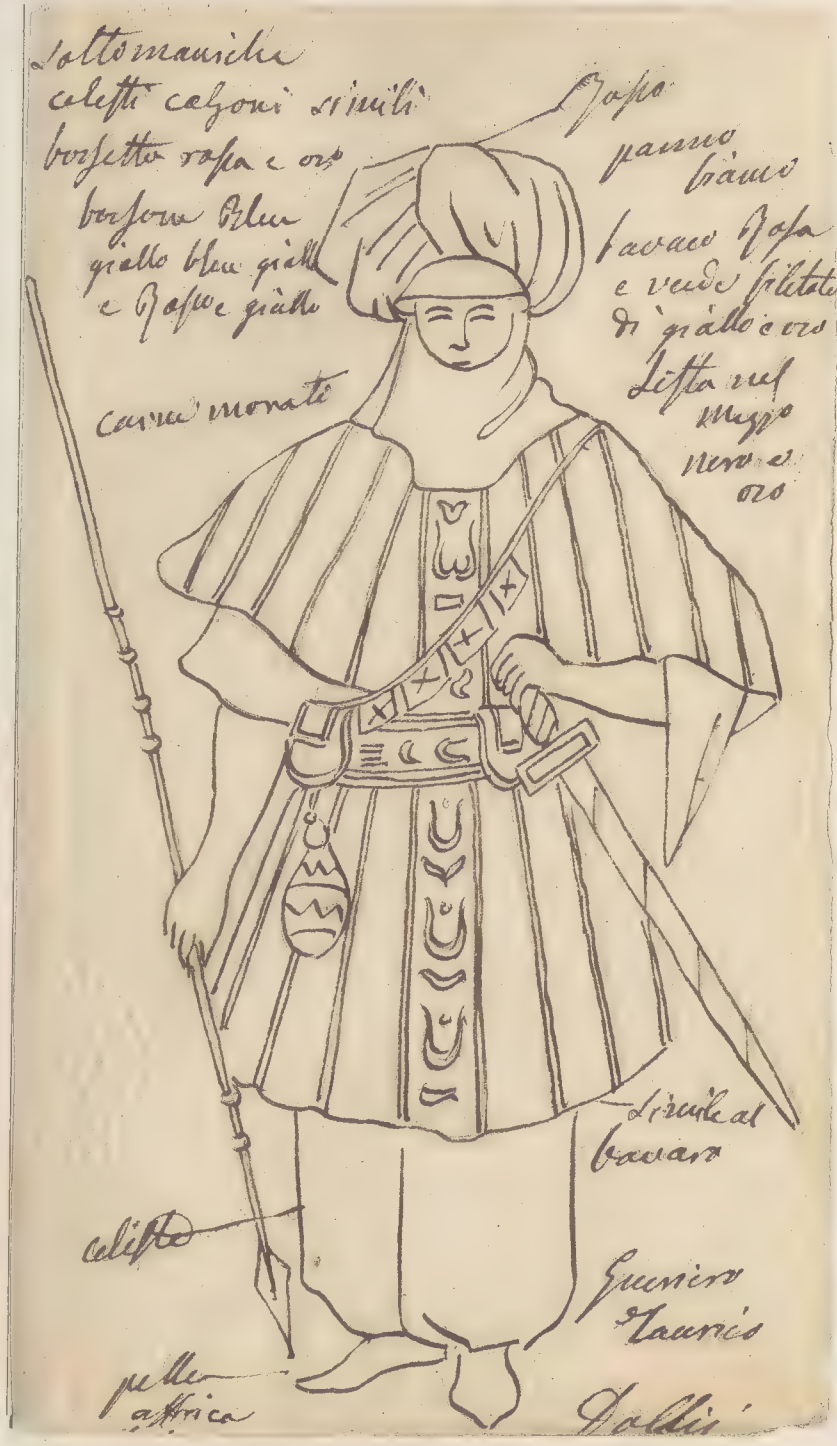 sottomaniche
celesti calzoni simili
borsetta rossa e oro
borsone Bleu
giallo bleu giallo
e Rosso e giallo
Rosso
panno
bianco
bavaro Rosso
e verde filetato
di giallo e oro
Lista nel
mezzo
nero e
oro
carne
simile al
bavaro
celeste
Guerriero
Taurico
pelle
affrica